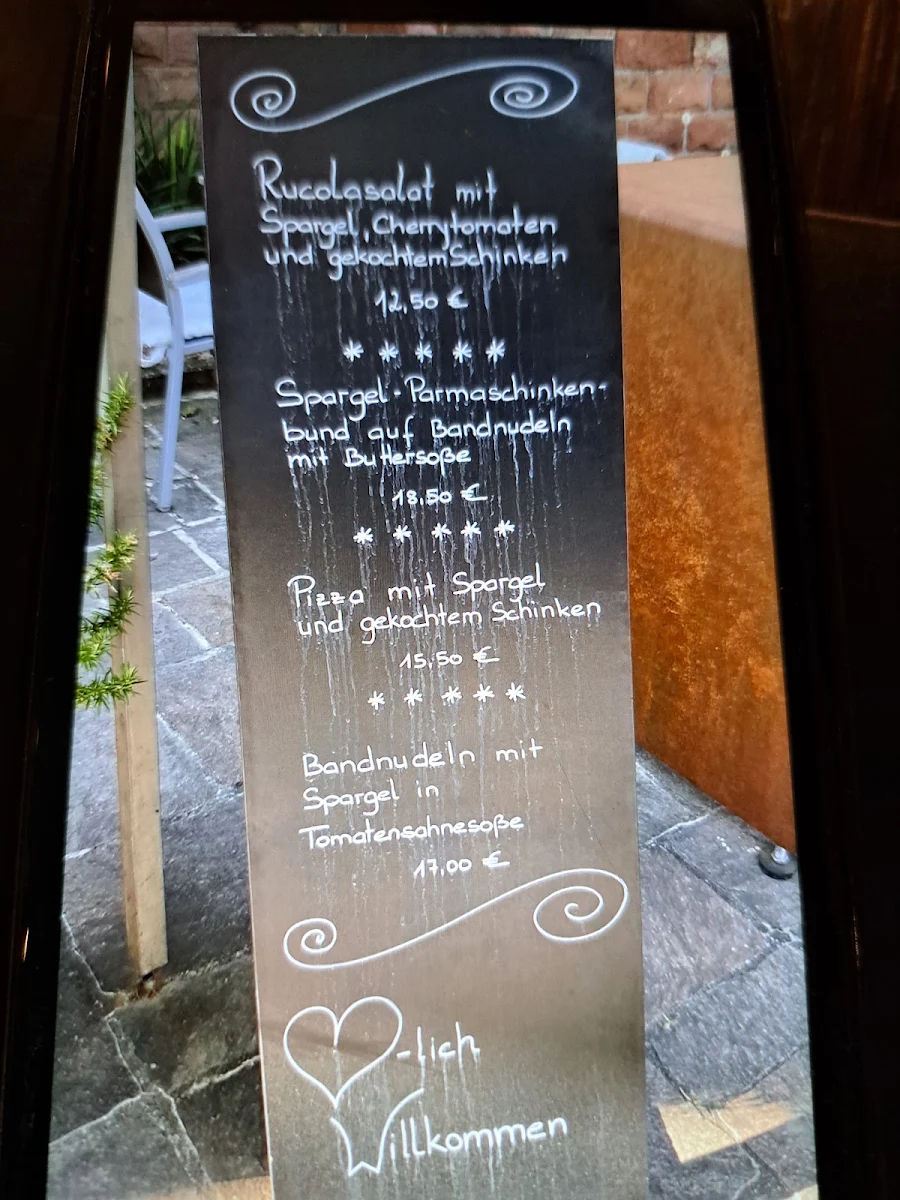 Rucolasalat mit
Spargel, Cherrytomaten
und gekochtem Schinken
12,50 €
* * * * *
Spargel-Parmaschinken-
bund auf Bandnudeln
mit Buttersoße
18,50 €
* * * * *
Pizza mit Spargel
und gekochtem Schinken
15,50 €
* * * * *
Bandnudeln mit
Spargel in
Tomatensahnesoße
17,00 €
-lich
Willkommen